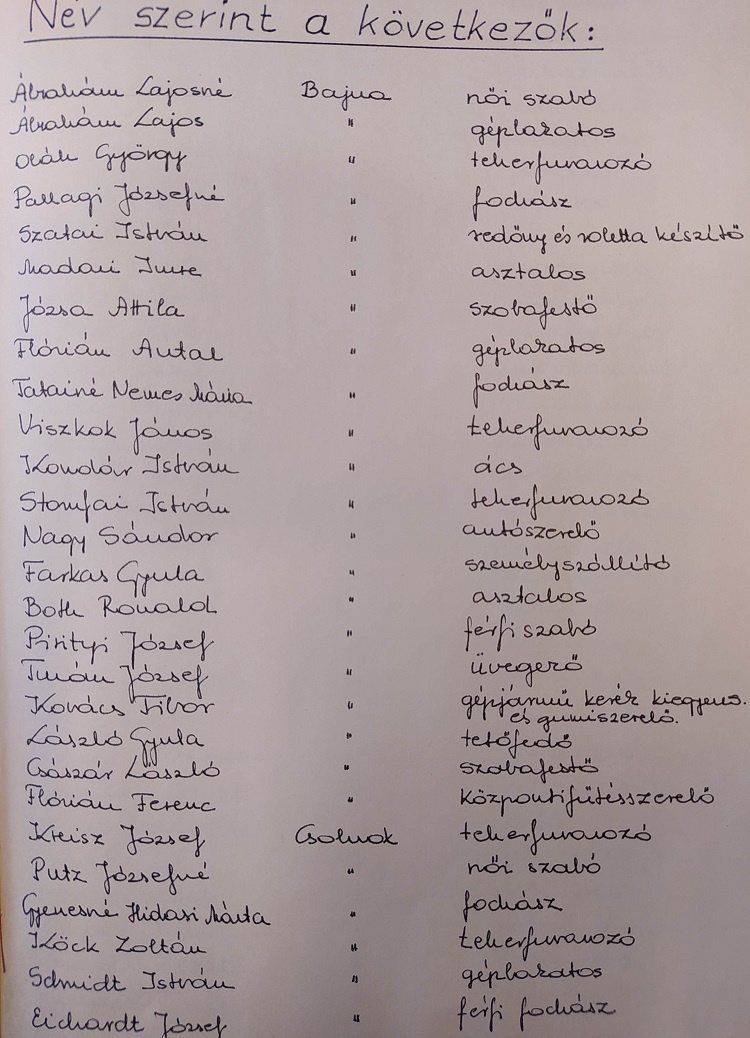 Név szerint a következők:
Ábrahám Lajosné Bajna női szabó
Ábrahám Lajos " géplakatos
Oláh György " teherfuvarozó
Pallagi Józsefné " fodrász
Szatai István " redőny és roletta készítő
Madari Imre " asztalos
Józsa Attila " szobafestő
Flórián Antal " géplakatos
Tatainé Nemes Mária " fodrász
Viszkok János " teherfuvarozó
Kondór István " ács
Stomfai István " teherfuvarozó
Nagy Sándor " autószerelő
Farkas Gyula " személyszállító
Both Ronald " asztalos
Pirityi József " férfi szabó
Turán József " üvegező
Kovács Tibor " gépjármű kerék kiegyens.
és gumiszerelő.
László Gyula " tetőfedő
Császár László " szobafestő
Flórián Ferenc " központifűtésszerelő
Kreisz József Csolnok teherfuvarozó
Putz Józsefné " női szabó
Gyenesné Hidasi Márta " fodrász
Köck Zoltán " teherfuvarozó
Schmidt István " géplakatos
Eichardt József " férfi fodrász